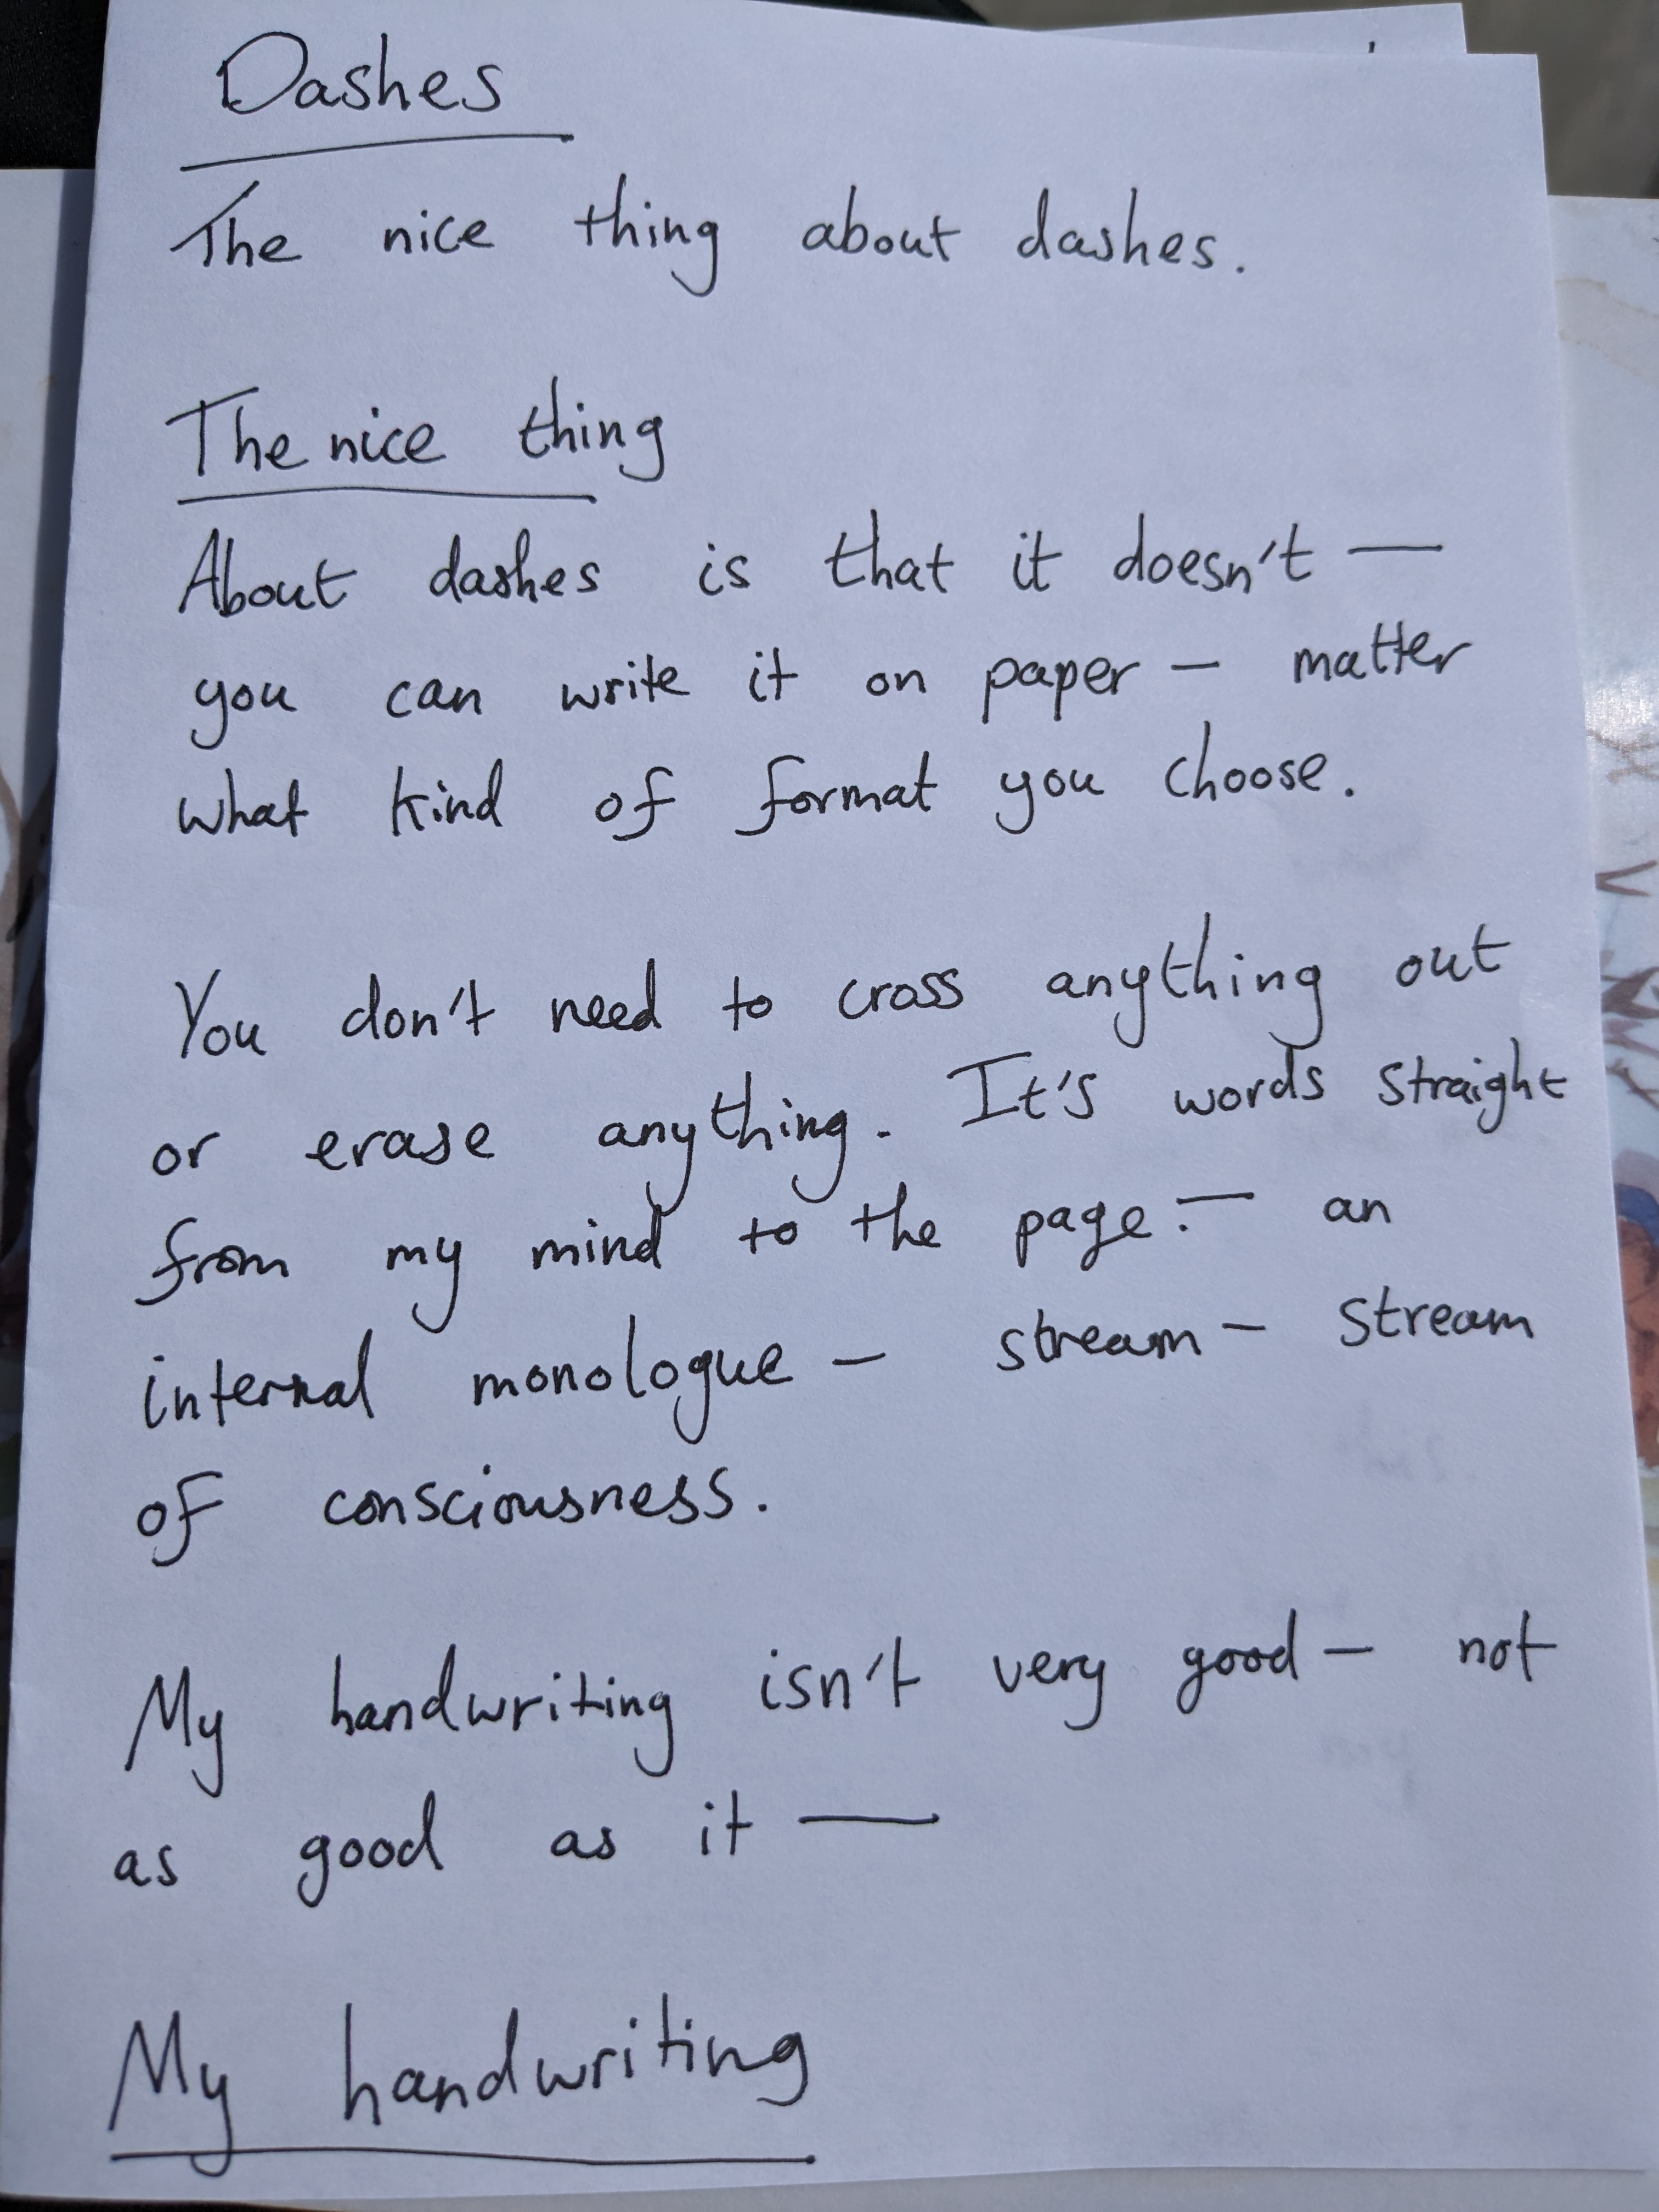 Dashes
The nice thing about dashes.
The nice thing
About dashes is that it doesn't —
you can write it on paper — matter
what kind of format you choose.
You don't need to cross anything out
or erase anything. It's words straight
from my mind to the page. — an
internal monologue — stream — stream
of consciousness.
My handwriting isn't very good — not
as good as it —
My handwriting